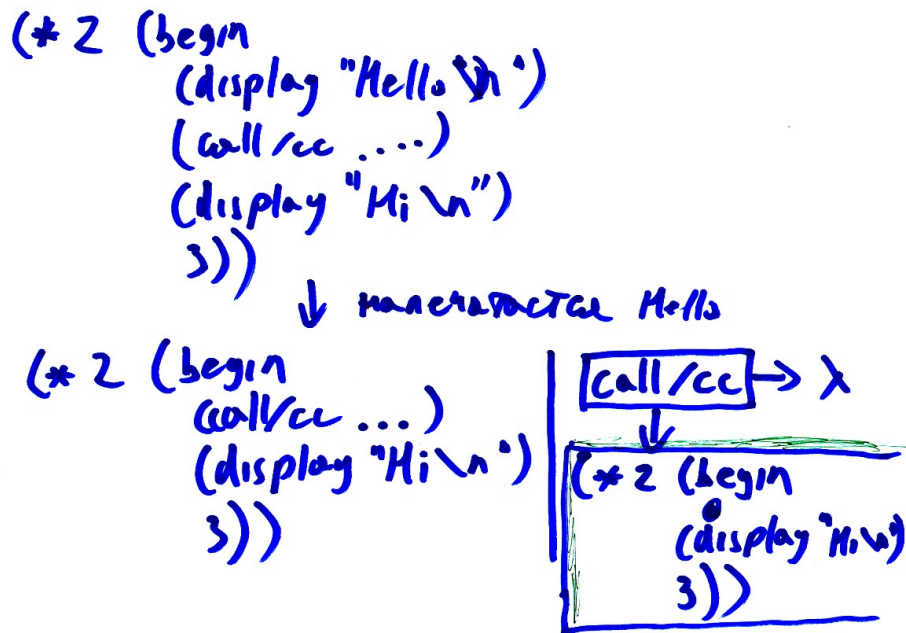 (* 2 (begin
(display "Hello\n")
(call/cc ....)
(display "Hi\n")
3))
↓ напечатается Hello
(* 2 (begin
(call/cc ...)
(display "Hi\n")
3))
call/cc → λ
↓
(* 2 (begin
•
(display "Hi\n")
3))